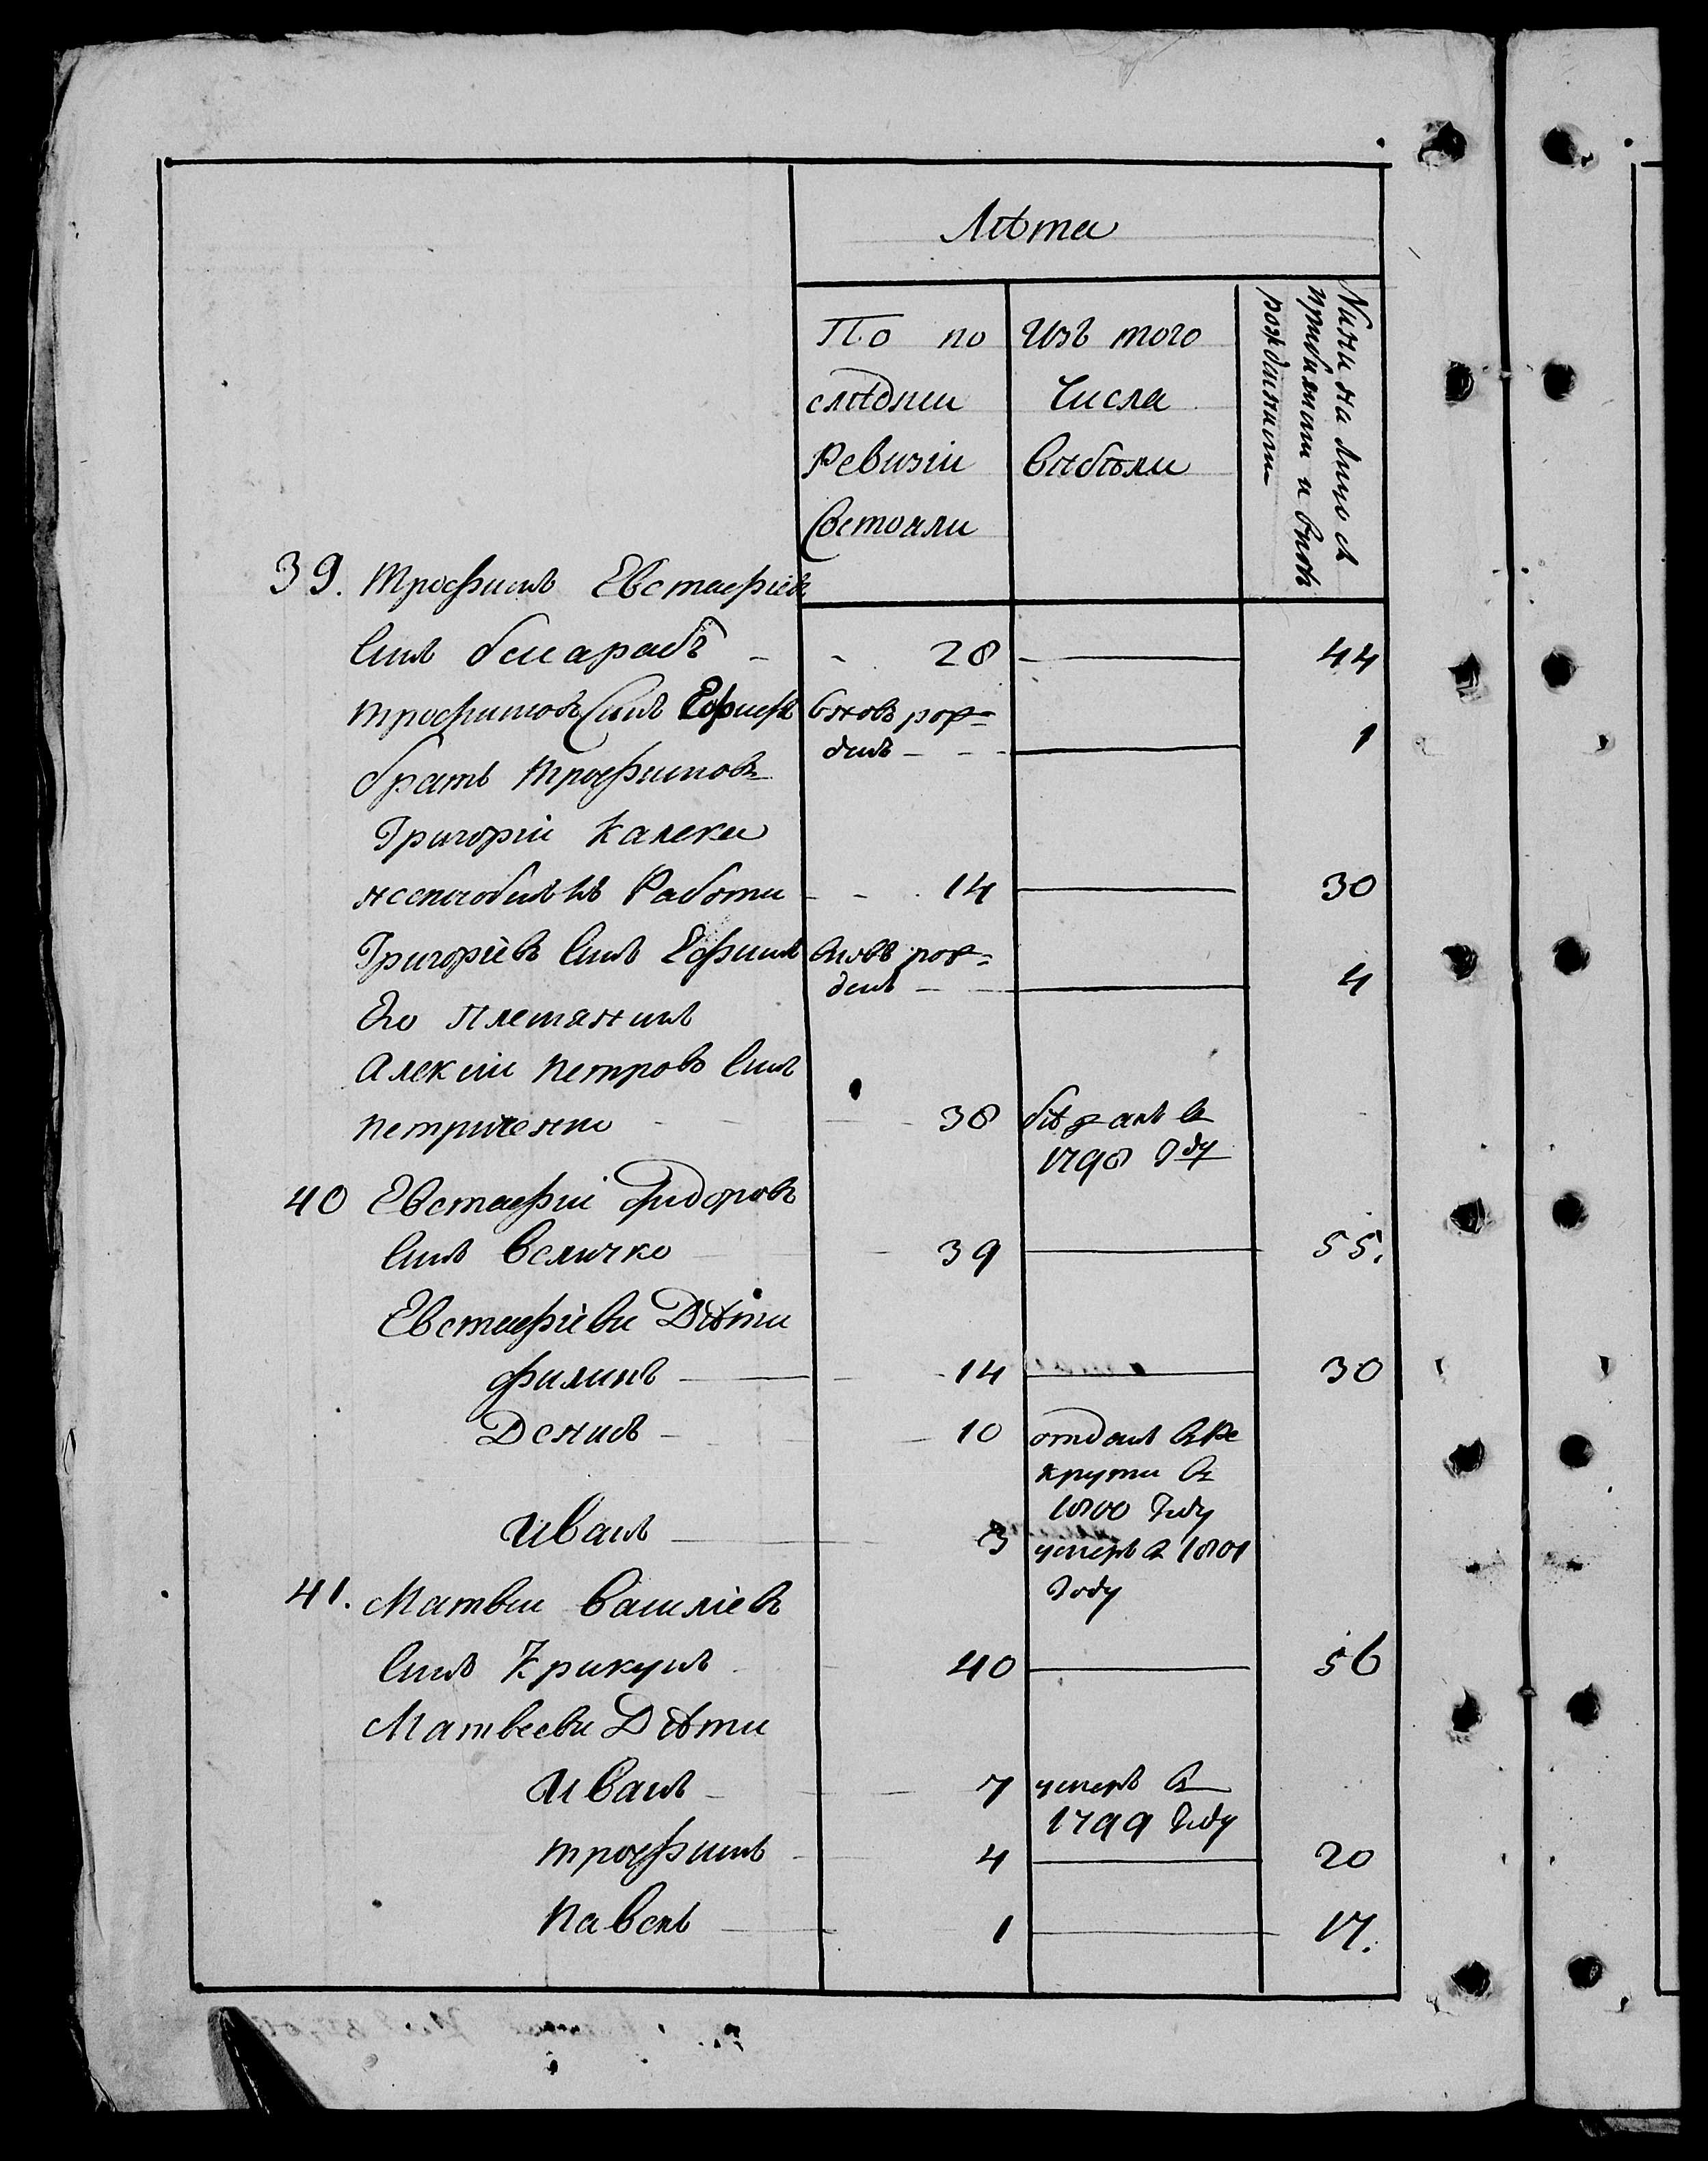 Лѣта
По по
слѣднеи
Ревизіи
Состояли
изъ того
Числа
выбыли
Нине на лицо съ
прибилими и вновь
рожденними
39. трофимъ Евстафіевъ
синъ бесарабъ - 28 — 44
трофимовъ Синъ Ефимъ вновь рож=
денъ — 1
братъ трофимовъ
Григорій калека
неспособенъ къ Работи 14 — 30
Григоріевъ Синъ Ефимъ вновь рож=
денъ — 4
Его племянникъ
Алексій петровъ Синъ
петриченко 38 бѣжалъ в
1798 году
40 Евстафій Фидоровъ
Синъ величко 39 — 55.
Евстафіеви Дѣти
филипъ — 14 — 30
Денисъ - 10 отданъ въ ре
крути въ
1800 году
Иванъ — 3 умеръ в 1801
году
41. Матвеи василіевъ
Синъ Крикунъ 40 — 56
Матвееви Дѣти
Иванъ - 7 умеръ в
1799 году
трофимъ - 4 — 20
павелъ 1 — 17.